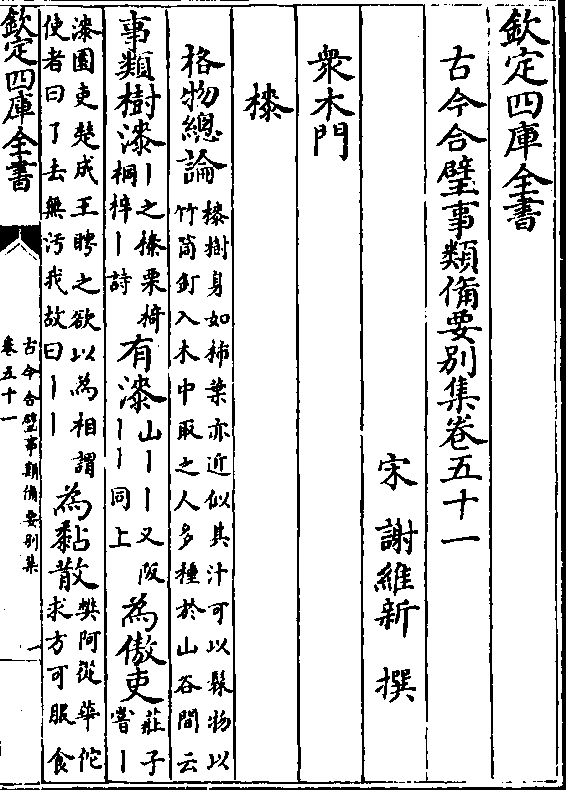 欽定四庫全書
古今合璧事類備要別集卷五十一
宋 謝維新 撰
衆木門
㯃
格物總論㯃樹身如柿葉亦近似其汁可以髹物以
竹筒釘入木中取之人多種於山谷間云
事類樹漆丨之榛栗椅
桐梓丨詩有漆山丨丨又阪
丨丨同上為傲吏莊子
嘗丨
漆園吏楚成王聘之欲以為相謂
使者曰了去無汚我故曰丨丨為黏散樊阿從華佗
求方可服食
欽定四庫全書
古今合璧事類備要別集
卷五十一
一